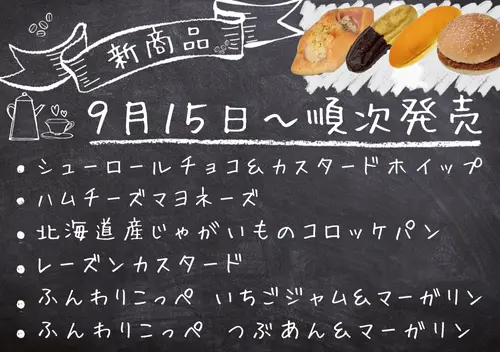 新商品
9月15日～順次発売
・シューロールチョコ&カスタードホイップ
・ハムチーズマヨネーズ
・北海道産じゃがいものコロッケパン
・レーズンカスタード
・ふんわりこっぺ いちごジャム&マーガリン
・ふんわりこっぺ つぶあん&マーガリン